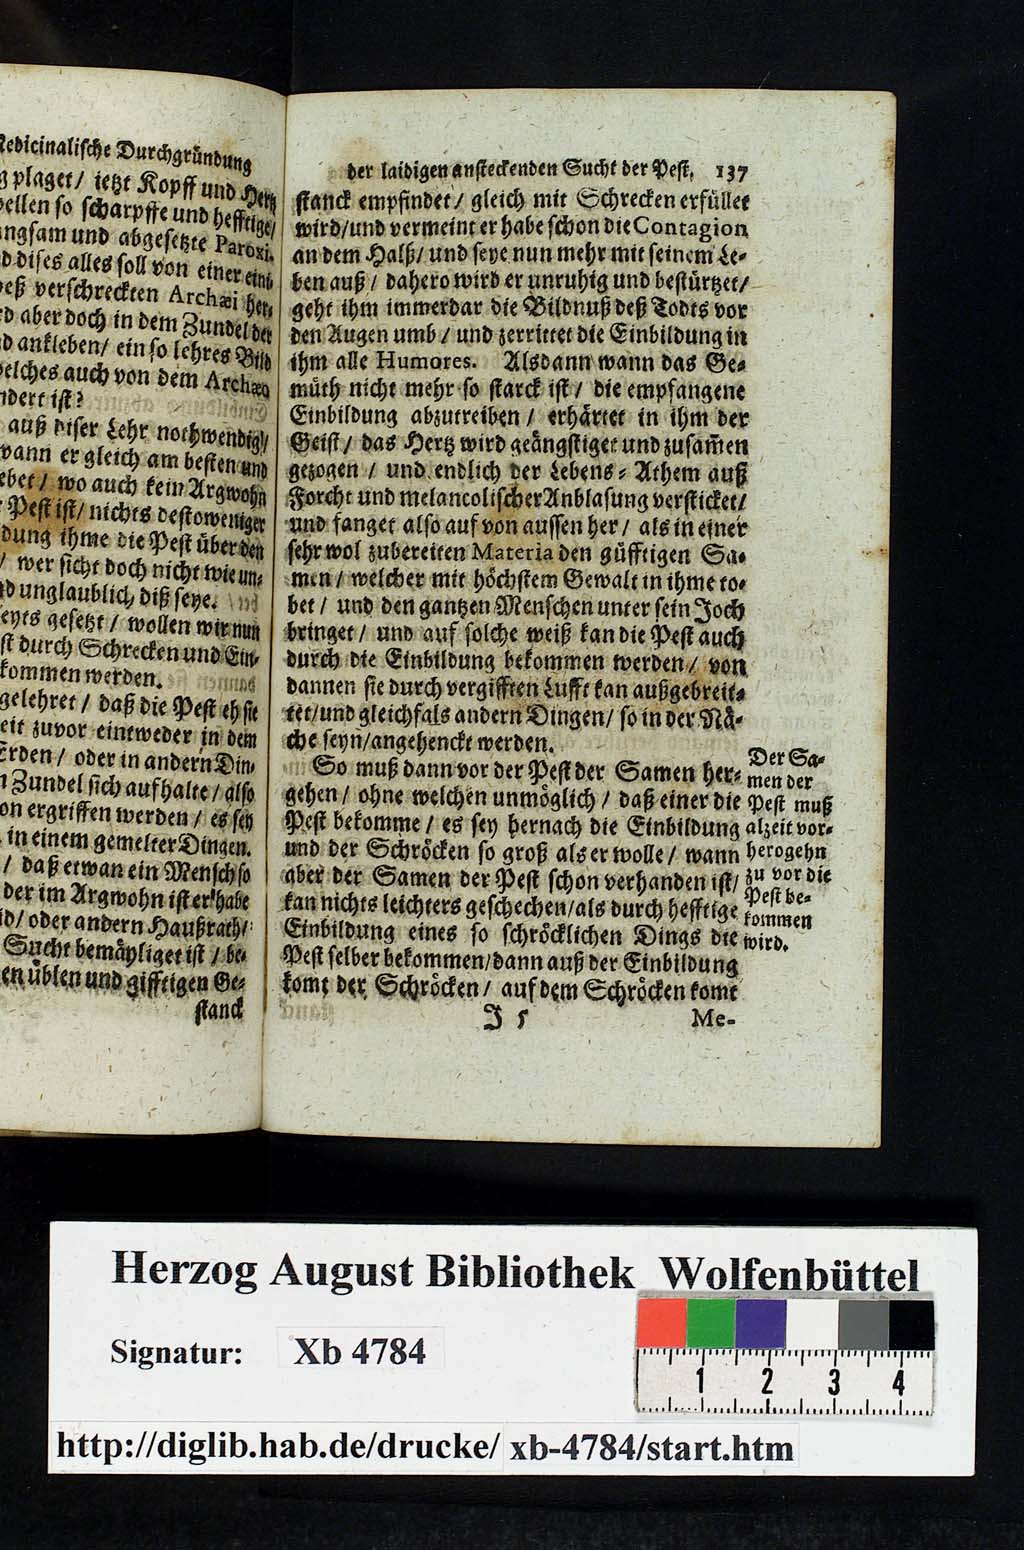 Medicinalische Durchgründung
plaget / ietzt Kopff und Hertz
so scharpffe und hefftige/
und abgesetzte Paroxi-
dises alles soll von einer eini-
verschreckten Archæi her-
aber doch in dem Zundel der
ankleben/ ein so lehres Bild
welches auch von dem Archæo
ist?
auß diser Lehr nothwendig/
wann er gleich am besten und
wo auch kein Argwohn
Pest ist/ nichts destoweniger
ihme die Pest über den
/ wer sicht doch nicht wie un-
unglaublich diß seye.
gesetzt / wollen wir nun
durch Schrecken und Ein-
kommen werden.
gelehret / daß die Pest eh sie
zuvor eintweder in dem
Erden / oder in andern Din-
Zundel sich aufhalte / also
ergriffen werden / es sey
in einem gemelter Dingen.
/ daß etwan ein Mensch so
der im Argwohn ist er habe
/ oder andern Haußrath/
Sucht bemäyliget ist / be-
üblen und gifftigen Ge-
stanck
der laidigen ansteckenden Sucht der Pest. 137
stanck empfindet / gleich mit Schrecken erfüllet
wird/und vermeint er habe schon die Contagion
an dem Halß/ und seye nun mehr mit seinem Le-
ben auß / dahero wird er unruhig und bestürtzet/
geht ihm immerdar die Bildnuß deß Todts vor
den Augen umb / und zerrittet die Einbildung in
ihm alle Humores. Alsdann wann das Ge-
müth nicht mehr so starck ist / die empfangene
Einbildung abzutreiben / erhärtet in ihm der
Geist / das Hertz wird geängstiget und zusam̃en
gezogen / und endlich der Lebens-Athem auß
Forcht und melancolischer Anblasung versticket/
und fanget also auf von aussen her / als in einer
sehr wol zubereiten Materia den güfftigen Sa-
men / welcher mit höchstem Gewalt in ihme to-
bet / und den gantzen Menschen unter sein Joch
bringet / und auf solche weiß kan die Pest auch
durch die Einbildung bekommen werden / von
dannen sie durch vergifften Lufft kan außgebreit-
tet/und gleichfals andern Dingen/ so in der Nä-
che seyn/angehenckt werden.
So muß dann vor der Pest der Samen her-
gehen / ohne welchen unmöglich / daß einer die
Pest bekomme / es sey hernach die Einbildung
und der Schröcken so groß als er wolle / wann
aber der Samen der Pest schon verhanden ist/
kan nichts leichters geschechen/als durch hefftige
Einbildung eines so schröcklichen Dings die
Pest selber bekommen/dann auß der Einbildung
komt der Schröcken / auf dem Schröcken komt
J 5 Me-
Der Sa-
men der
Pest muß
alzeit vor-
herogehn
zu vor die
Pest be-
kommen
wird.
Herzog August Bibliothek Wolfenbüttel
Signatur: Xb 4784
1 2 3 4
http://diglib.hab.de/drucke/ xb-4784/start.htm